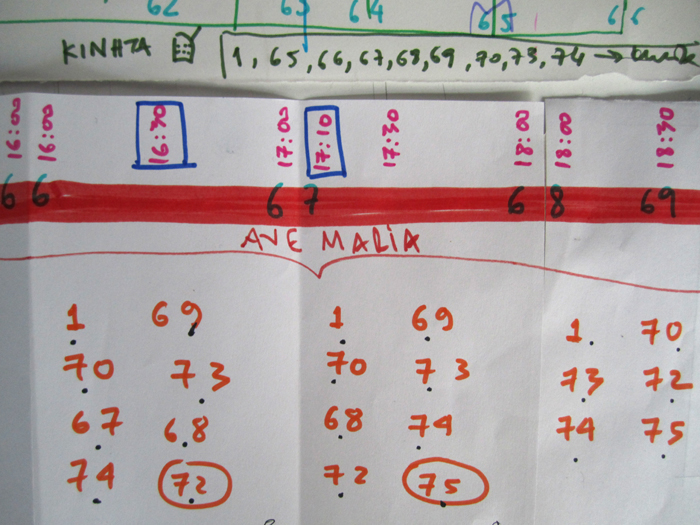 62 63 64 65 66
KINHTA 1, 65, 66, 67, 68, 69, 70, 73, 74 →
16:00 16:00 16:30 17:00 17:10 17:30 18:00 18:00 18:30
6 6 6 7 6 8 69
AVE MARIA
1 69 1 69 1 70
70 73 70 73 73 72
67 68 68 74 74 75
74 72 72 75